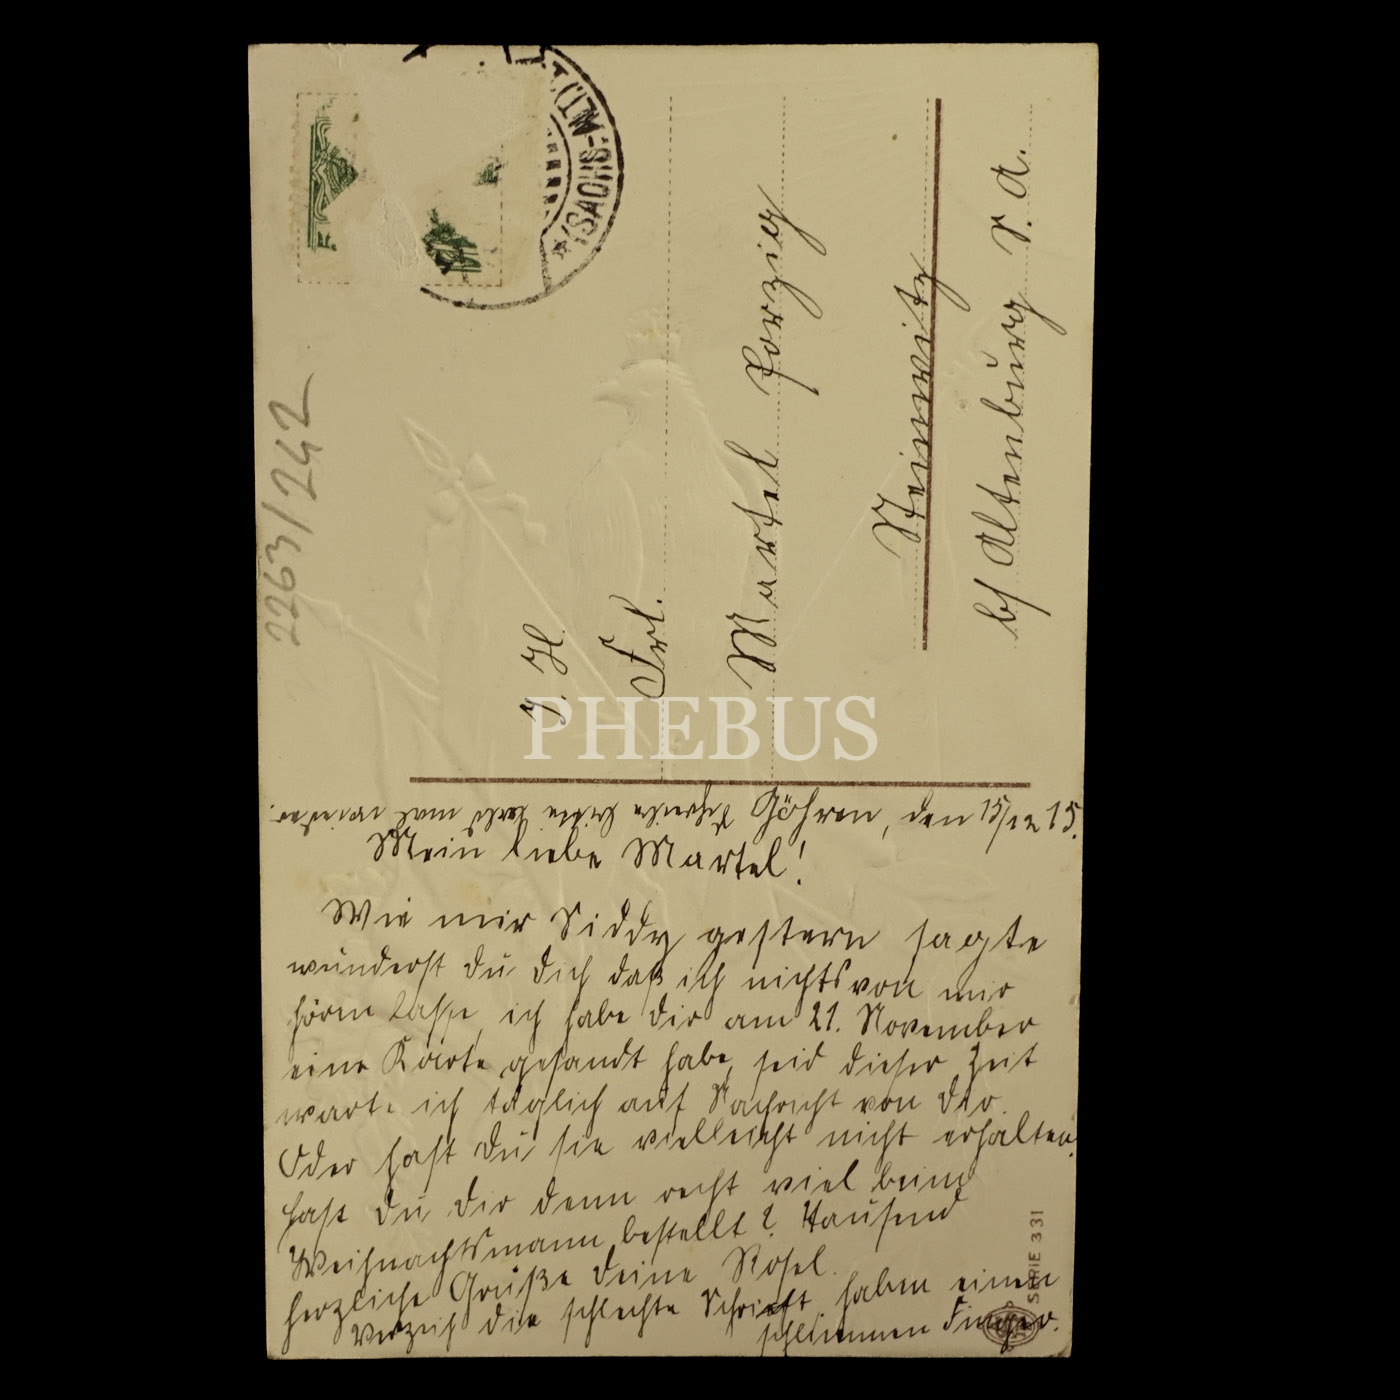 (SACHS.-ALT.)
2263/242
J. H.
Frl.
Martel Porzig
Steinwitz
b/ Altenburg S. A.
PHEBUS
Schreibe bitte bald mal wieder.
Göhren, den 15/12 15.
Mein liebe Martel!
Wie mir Siddy gestern sagte
wunderst du dich daß ich nichts von mir
hören lasse, ich habe dir am 21. November
eine Karte gesandt habe, seid dieser Zeit
warte ich täglich auf Nachricht von dir.
Oder hast du sie vielleicht nicht erhalten.
hast du dir denn recht viel beim
Weihnachtsmann bestellt? Tausend
herzliche Grüße deine Rosel.
Verzeih die schlechte Schrieft, haben einen
schlimmen Finger.
SERIE 331